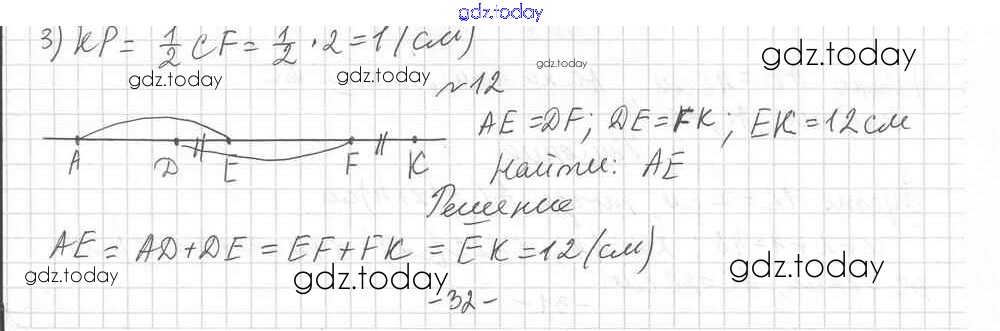 gdz.today
3) KP = 1/2 CF = 1/2 · 2 = 1 (см)
gdz.today gdz.today gdz.today gdz.today
№12
A D E F K
AE = DF; DE = FK; EK = 12 см
Найти: AE
Решение
AE = AD + DE = EF + FK = EK = 12 (см)
gdz.today gdz.today gdz.today
- 32 -